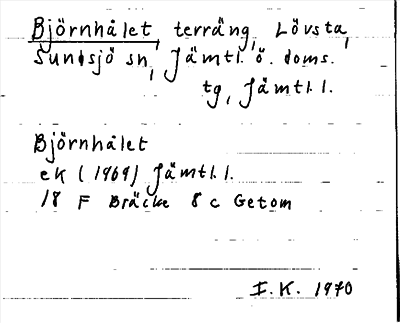 Björnhålet, terräng, Lövsta,
Sundsjö sn, Jämtl. ö. doms.
tg, Jämtl. l.
Björnhålet
eK (1969) Jämtl. l.
18 F Bräcke 8 c Getom
I. K. 1970